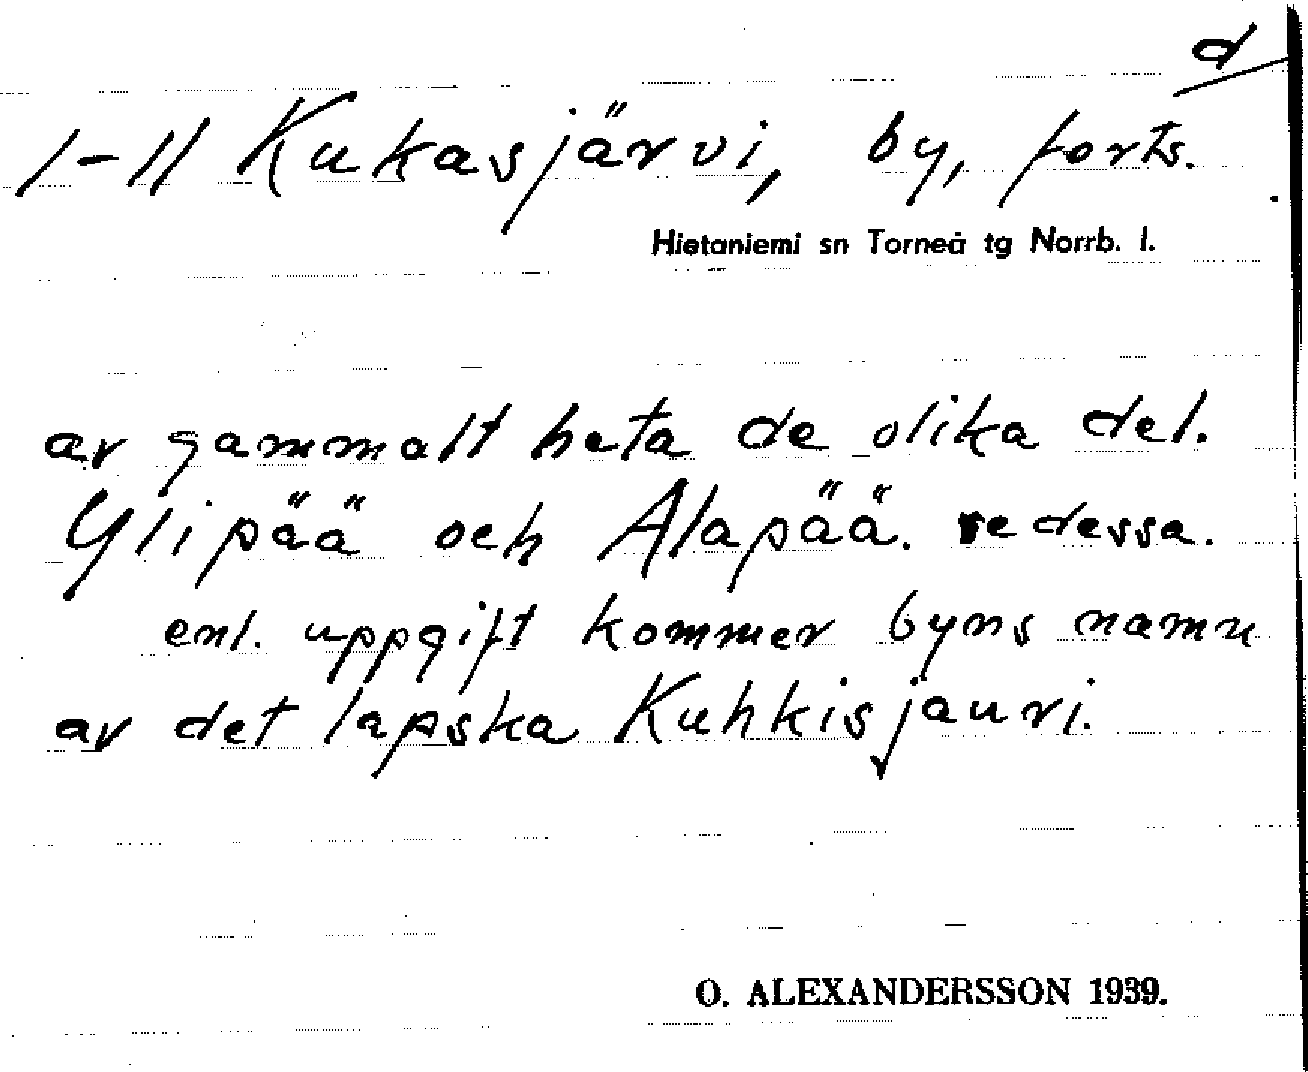 d
1-11 Kukasjärvi, by, forts.
Hietaniemi sn Torneå tg Norrb. l.
av gammalt heta de olika del.
Ylipää och Alapää. se dessa.
enl. uppgift kommer byns namn
av det lapska Kuhkisjauri.
O. ALEXANDERSSON 1939.